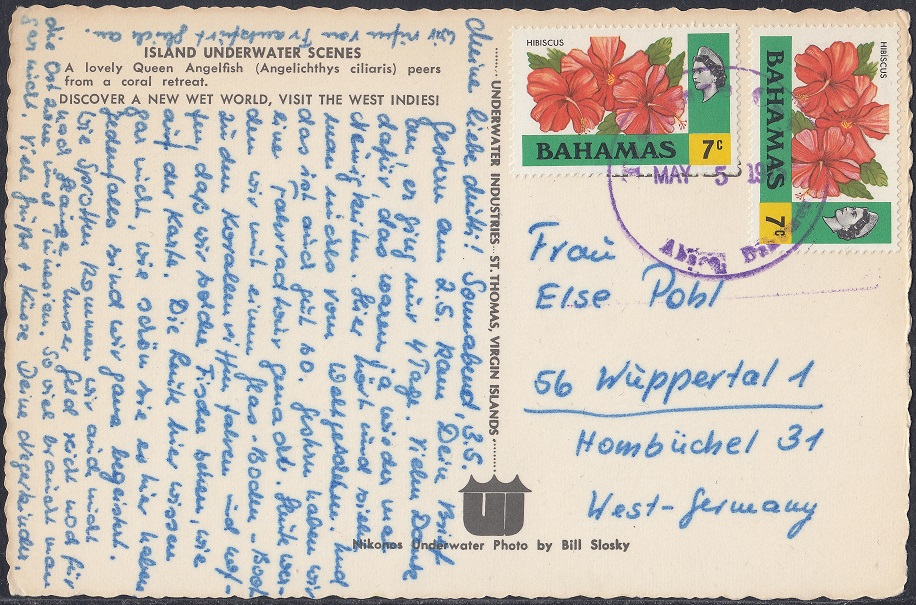 ISLAND UNDERWATER SCENES
A lovely Queen Angelfish (Angelichthys ciliaris) peers
from a coral retreat.
DISCOVER A NEW WET WORLD, VISIT THE WEST INDIES!
UNDERWATER INDUSTRIES - ST. THOMAS, VIRGIN ISLANDS
Nikonos Underwater Photo by Bill Slosky
HIBISCUS
BAHAMAS 7c
HIBISCUS
BAHAMAS 7c
MAY 5 19
Frau
Else Pohl
56 Wuppertal 1
Hombüchel 31
West-Germany
Meine liebe Sonnabend, 3.5.
Gestern am 2.5. kam Dein Brief
an, er ging nur 4 Tage. Vielen Dank
dafür, das waren ja wieder mal
Neuigkeiten. Hier hört und sieht
man nichts vom Weltgeschehen. Und
das ist auch gut so. Gestern haben wir
eine Fahrradtour gemacht. Heute wer-
den wir mit einem Glas-Boden-Boot
zu den Korallenriffen fahren und hof-
fen, daß wir solche Fische sehen, wie
auf der Karte. Die Leute hier wissen
gar nicht, wie schön sie es hier haben
Jedenfalls sind wir ganz begeistert.
Wie Sprotten kommen wir auch nicht
und Hunger. Unser Geld reicht noch für
die Zeit. So viel braucht man
gar nicht. Viele Grüße + Küsse Deine
Wir rufen von Frankfurt gleich an.